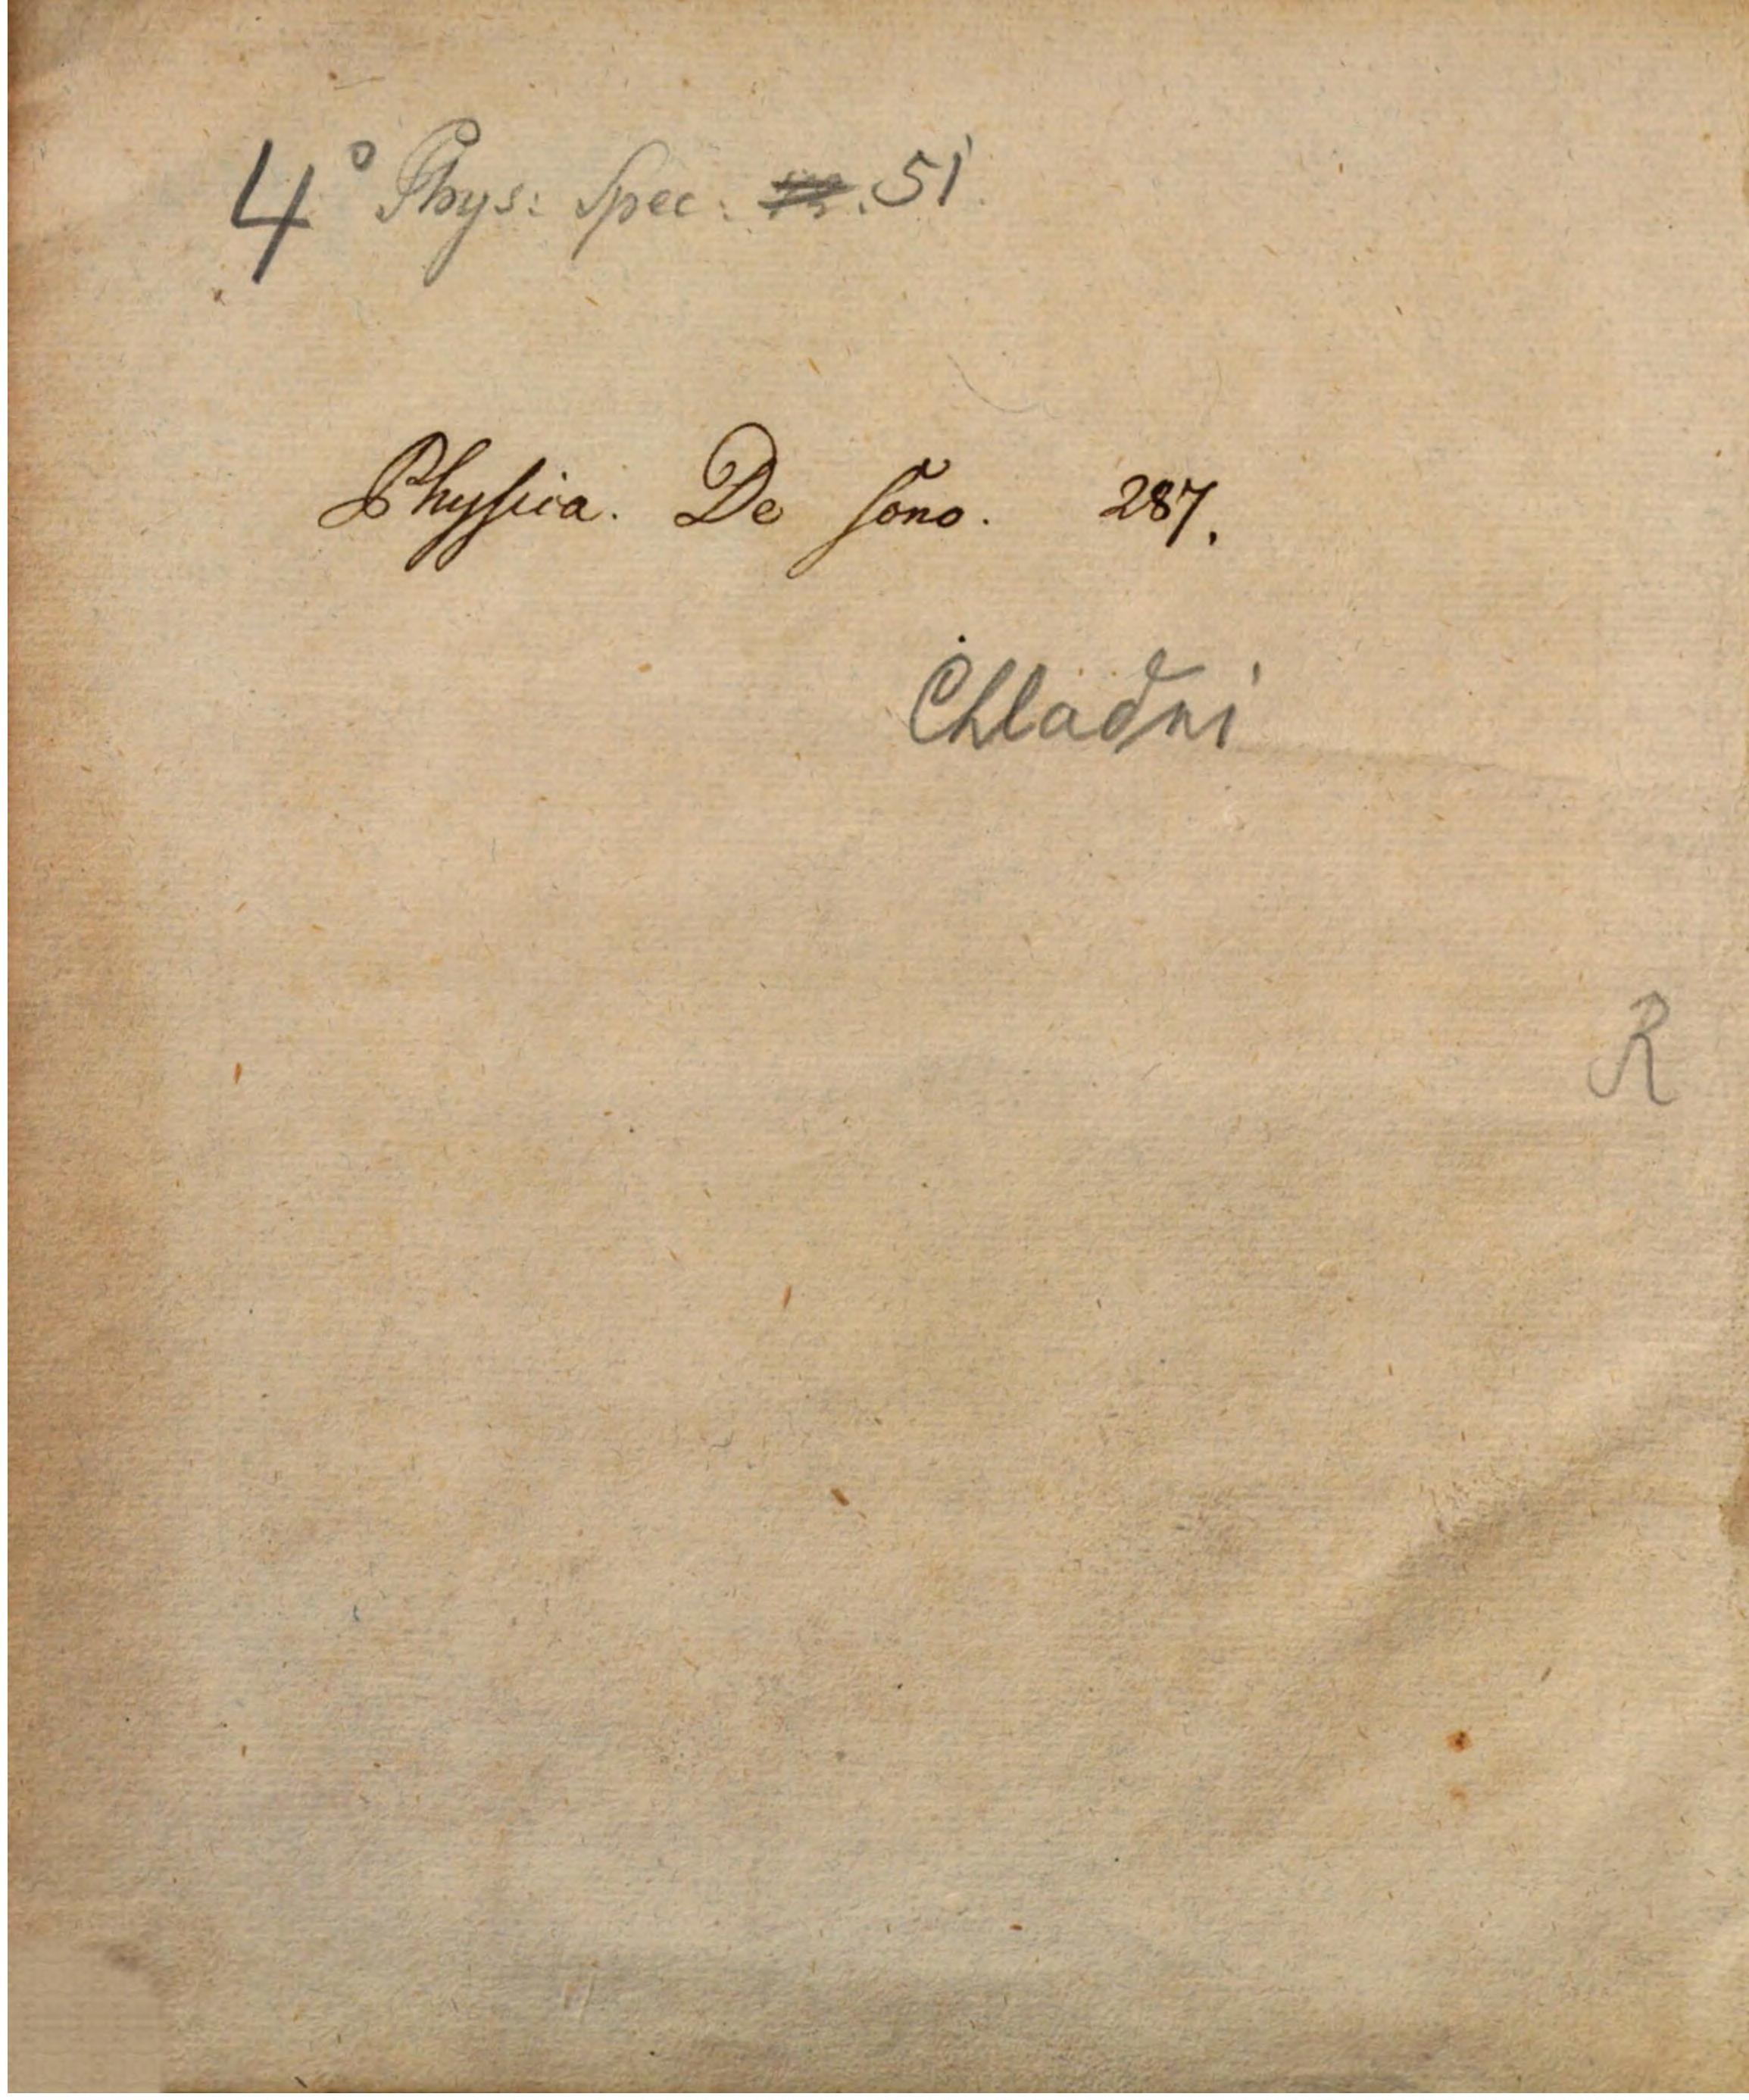 4° Phys: Spec: 51.
Physica. De sono. 287.
Chladni
R